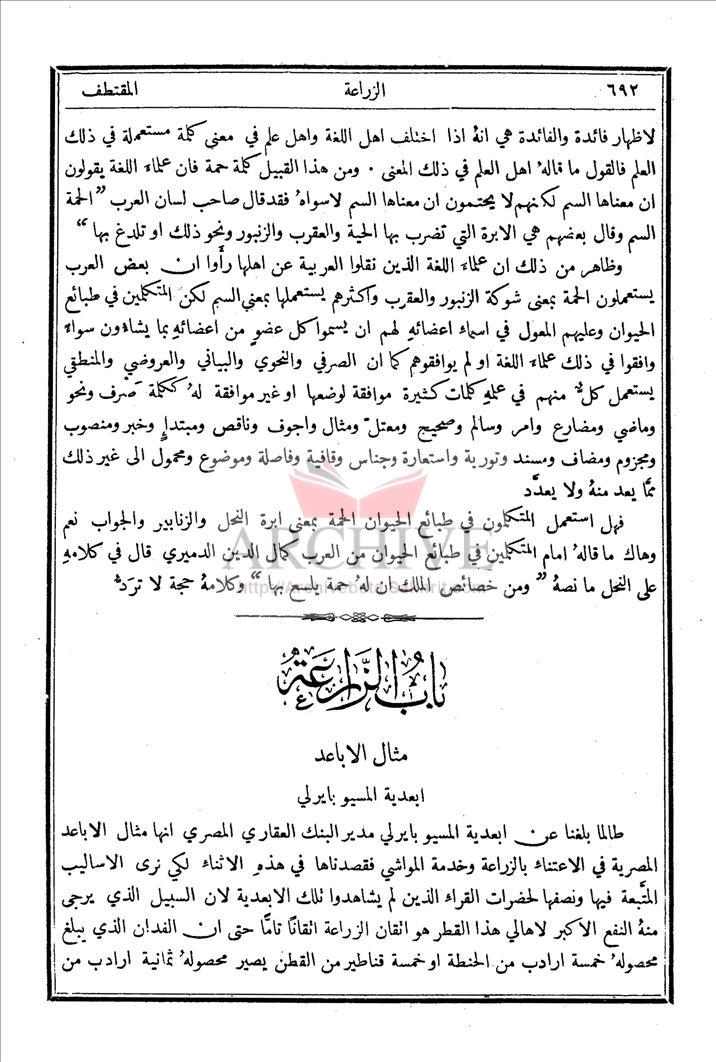 ٦٩٢ الزراعة المقتطف
لاظهار فائدة والفائدة هي انهُ اذا اختلف اهل اللغة واهل علم في معنى كلمة مستعملة في ذلك
العلم فالقول ما قالهُ اهل العلم في ذلك المعنى . ومن هذا القبيل كلمة حمة فان علماء اللغة يقولون
ان معناها السم لكنهم لا يحتمون ان معناها السم لاسواهُ فقد قال صاحب لسان العرب ” الحمة
السم وقال بعضهم هي الابرة التي تضرب بها الحية والعقرب والزنبور ونحو ذلك او تلدغ بها “
وظاهر من ذلك ان علماء اللغة الذين نقلوا العربية عن اهلها رأَوا ان بعض العرب
يستعملون الحمة بمعنى شوكة الزنبور والعقرب واكثرهم يستعملها بمعنى السم لكن المتكلمين في طبائع
الحيوان وعليهم المعول في اسماء اعضائهِ لهم ان يسموا كل عضوٍ من اعضائهِ بما يشاءُون سواء
وافقوا في ذلك علماء اللغة او لم يوافقوهم كما ان الصرفي والنحوي والبياني والعروضي والمنطقي
يستعمل كلٌّ منهم في علمهِ كلمات كثيرة موافقة لوضعها او غير موافقة لهُ ككلمة صَرف ونحو
وماضي ومضارع وامر وسالم وصحيح ومعتلّ ومثال واجوف وناقص ومبتدإٍ وخبر ومنصوب
ومجزوم ومضاف ومسند وتورية واستعارة وجناس وقافية وفاصلة وموضوع ومحمول الى غير ذلك
ممَّا يعد منهُ ولا يعدَّد
فهل استعمل المتكلمون في طبائع الحيوان الحمة بمعنى ابرة النحل والزنابير والجواب نعم
وهاك ما قالهُ امام المتكلمين في طبائع الحيوان من العرب كمال الدين الدميري قال في كلامهِ
على النحل ما نصهُ ” ومن خصائص الملك ان لهُ حمة يلسع بها “ وكلامهُ حجة لا تردُّ
ARCHIVE
http://Archivebeta.Sakhrit.com
بابُ الزراعة
مثال الاباعد
ابعدية المسيو بايرلي
طالما بلغنا عن ابعدية المسيو بايرلي مدير البنك العقاري المصري انها مثال الاباعد
المصرية في الاعتناء بالزراعة وخدمة المواشي فقصدناها في هذهِ الاثناء لكي نرى الاساليب
المتَّبعة فيها ونصفها لحضرات القراء الذين لم يشاهدوا تلك الابعدية لان السبيل الذي يرجى
منهُ النفع الاكبر لاهالي هذا القطر هو اتقان الزراعة اتقانًا تامًّا حتى ان الفدان الذي يبلغ
محصولهُ خمسة ارادب من الحنطة او خمسة قناطير من القطن يصير محصولهُ ثمانية ارادب من